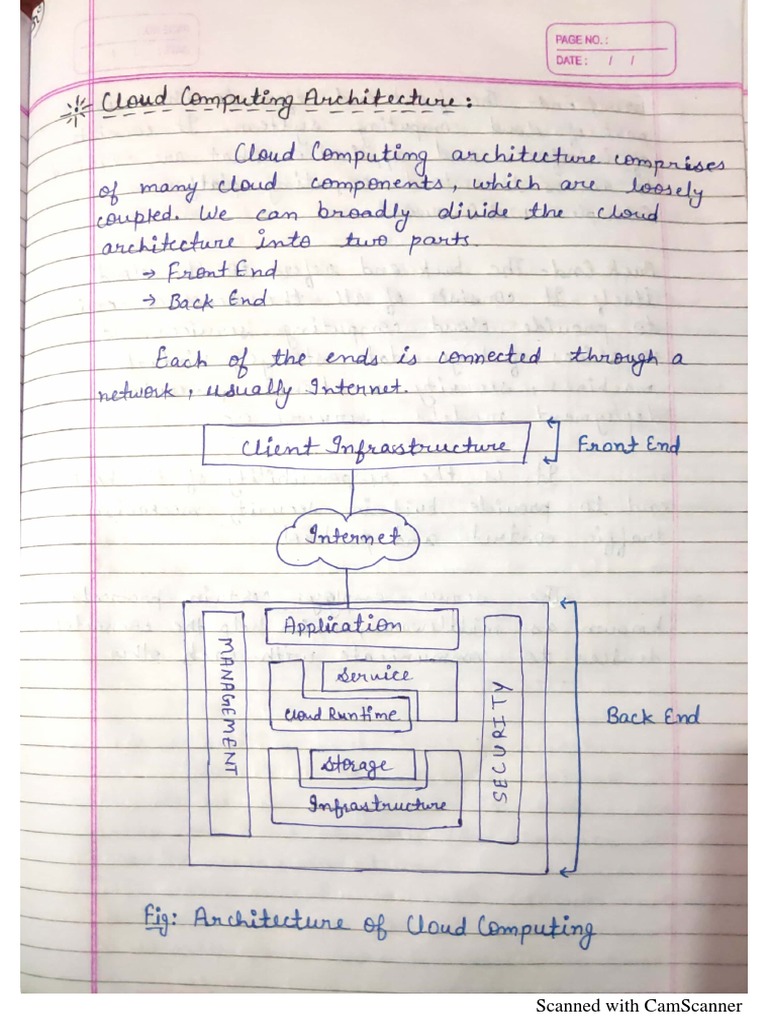 PAGE NO.:
DATE: / /
Cloud Computing Architecture:
Cloud Computing architecture comprises
of many cloud components, which are loosely
coupled. We can broadly divide the cloud
architecture into two parts.
→ Front End
→ Back End
Each of the ends is connected through a
network, usually Internet.
Client Infrastructure
Front End
Internet
Application
MANAGEMENT
Service
Cloud Runtime
Storage
Infrastructure
SECURITY
Back End
Fig: Architecture of Cloud Computing
Scanned with CamScanner